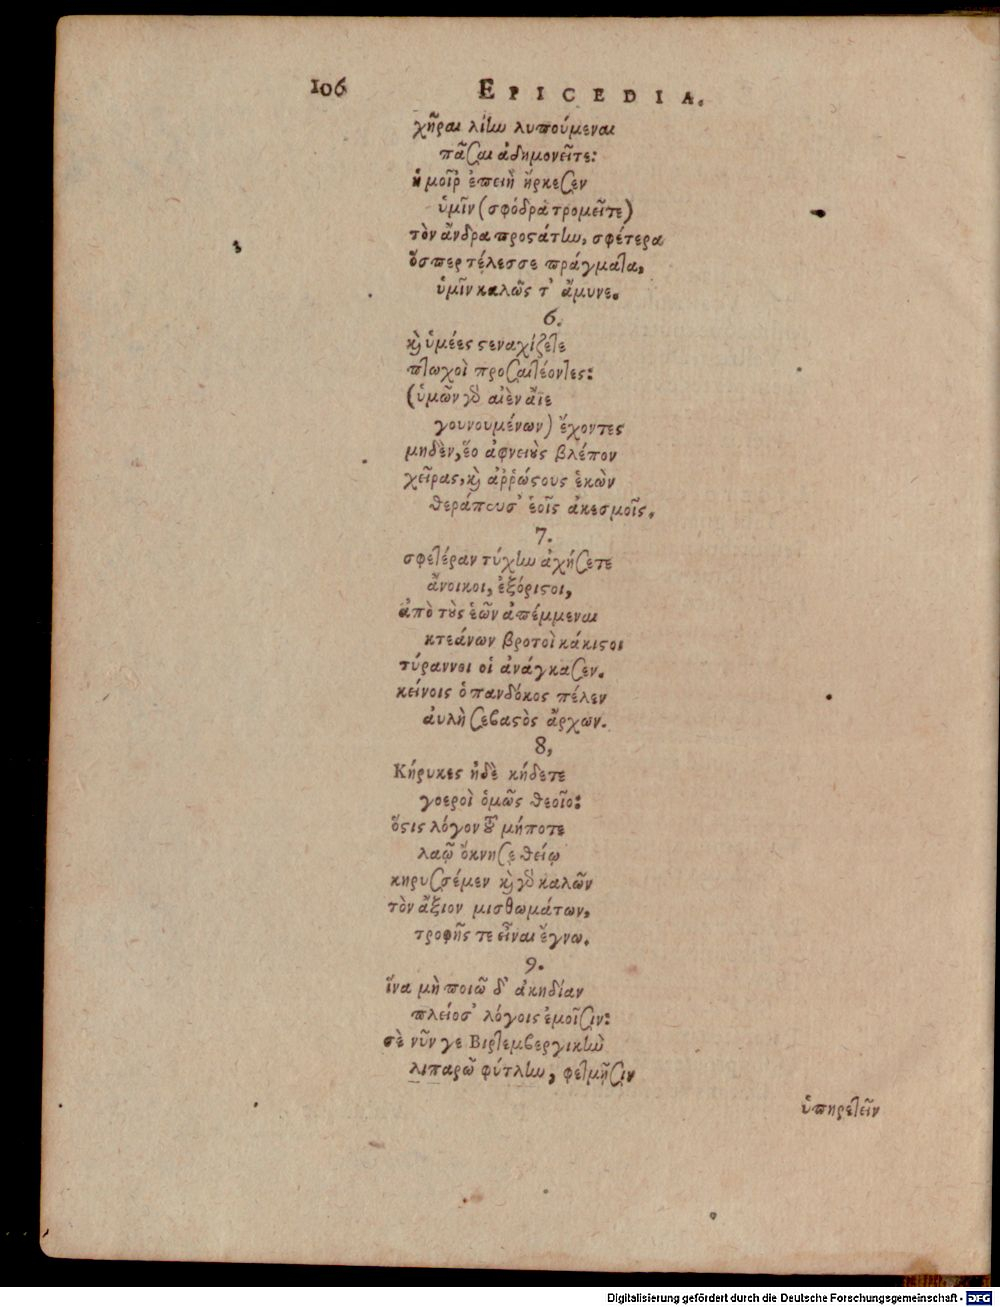 106 EPICEDIA.
χῆραι λίην λυπούμεναι
πᾶσαι ἀδημονεῖτε:
ἡ μοῖρ' ἐπειὴ ἤρκεσεν
ὑμῖν (σφόδρα τρομεῖτε)
τὸν ἄνδρα προςάτην, σφέτερα
ὅσπερ τέλεσσε πράγματα,
ὑμῖν καλῶς τ' ἄμυνε.
6.
καὶ ὑμέες ϛεναχίζετε
πτωχοὶ προσαιτέοντες:
(ὑμῶν γὸ αἰὲν ἄϊε
γουνουμένων) ἔχοντες
μηδὲν, ἕο ἀφνειοὺς βλέπον
χεῖρας, καὶ ἀῤῥώϛους ἑκὼν
θεράπευσ' ἑοῖς ἀκεσμοῖς.
7.
σφετέραν τύχην ἀχήσετε
ἄνοικοι, ἐξόριϛοι,
ἀπὸ τοὺς ἑῶν ἀπέμμεναι
κτεάνων βροτοὶ κάκιϛοι
τύραννοι οἱ ἀνάγκασεν.
κείνοις ὁ πανδόκος πέλεν
ἀυλὴ σεβαϛὸς ἄρχων.
8,
Κήρυκες ἠδὲ κήδετε
γοεροὶ ὁμῶς θεοῖο:
ὅϛις λόγον τοῦ μήποτε
λαῷ ὄκνησε θείῳ
κηρυσσέμεν καὶ γὸ καλῶν
τὸν ἄξιον μισθωμάτων,
τροφῆς τε εἶναι ἔγνω.
9.
ἵνα μὴ ποιῶ δ' ἀκηδίαν
πλείοσ' λόγοις ἐμοῖσιν:
σὲ νῦν γε Βιρτεμβεργικὴν
λιπαρῶ φύτλην, φετμῇσιν
ὑπηρετεῖν
Digitalisierung gefördert durch die Deutsche Forschungsgemeinschaft - DFG